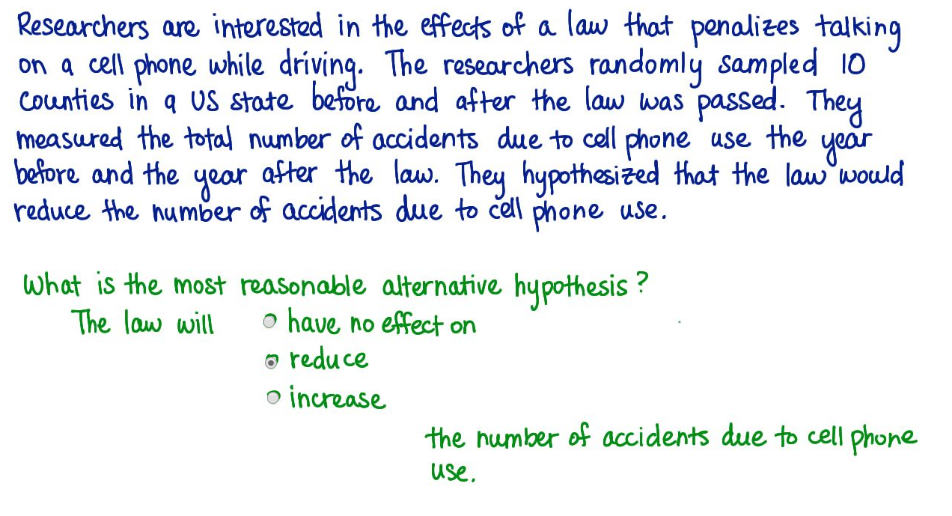 Researchers are interested in the effects of a law that penalizes talking
on a cell phone while driving. The researchers randomly sampled 10
counties in a US state before and after the law was passed. They
measured the total number of accidents due to cell phone use the year
before and the year after the law. They hypothesized that the law would
reduce the number of accidents due to cell phone use.
What is the most reasonable alternative hypothesis?
The law will have no effect on
reduce
increase
the number of accidents due to cell phone
use.